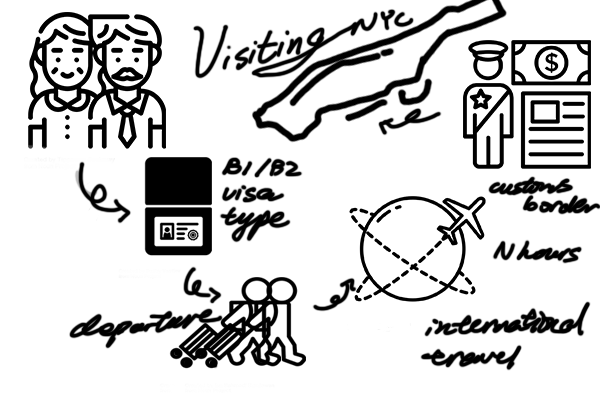 Visiting NYC
B1/B2
visa
type
$
customs
border
N hours
departure
international
travel